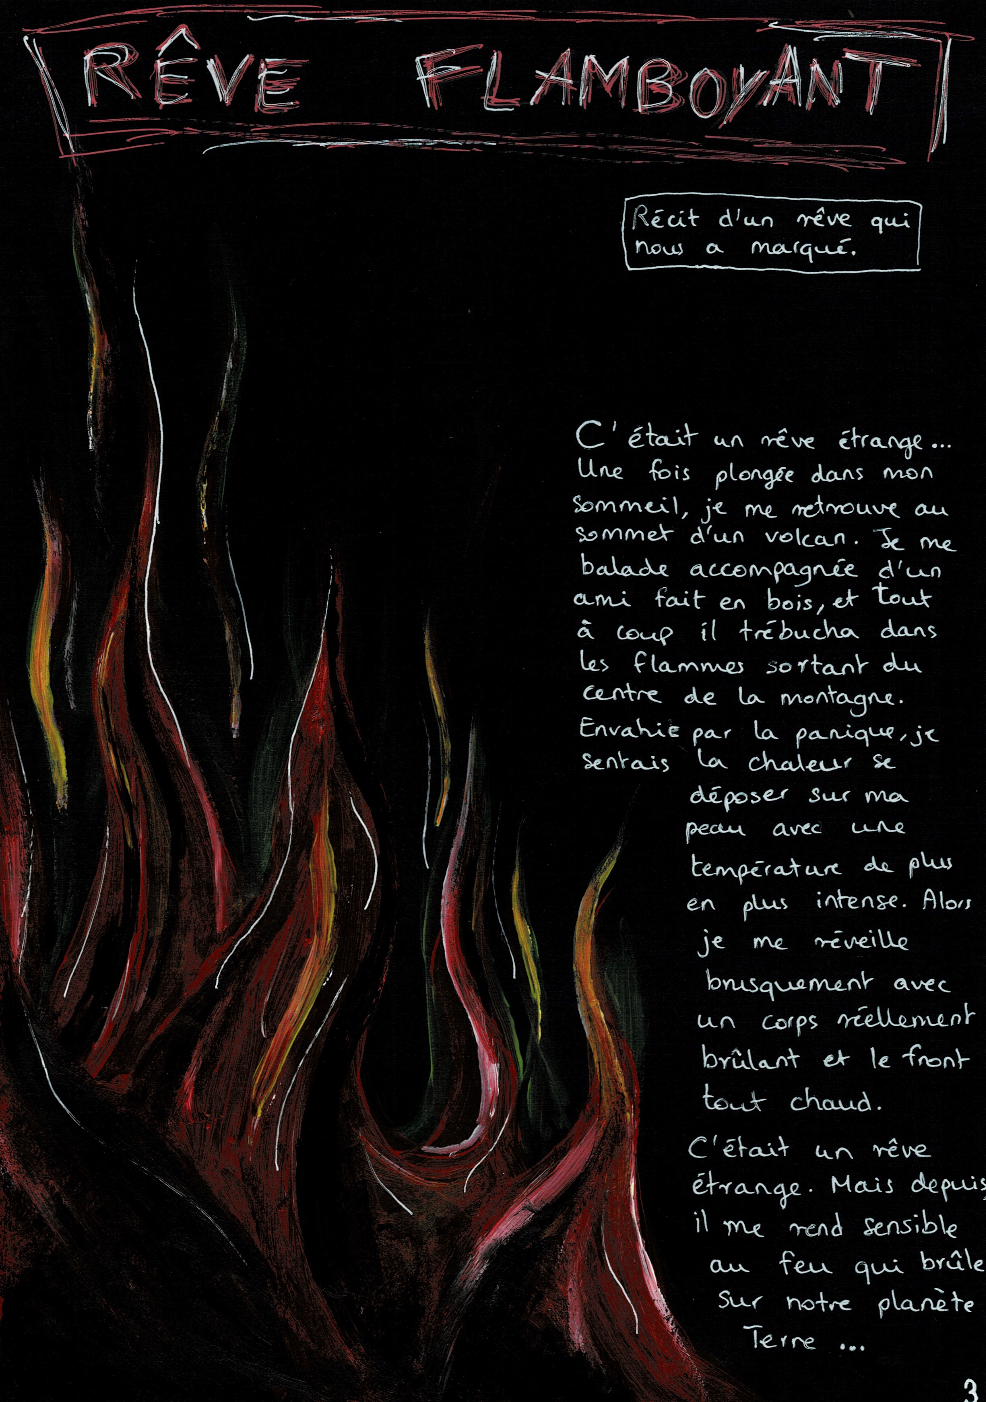 RÊVE FLAMBOYANT
Récit d'un rêve qui
nous a marqué.
C'était un rêve étrange...
Une fois plongée dans mon
sommeil, je me retrouve au
sommet d'un volcan. Je me
balade accompagnée d'un
ami fait en bois, et tout
à coup il trébucha dans
les flammes sortant du
centre de la montagne.
Envahie par la panique, je
sentais la chaleur se
déposer sur ma
peau avec une
température de plus
en plus intense. Alors
je me réveille
brusquement avec
un corps réellement
brûlant et le front
tout chaud.
C'était un rêve
étrange. Mais depuis,
il me rend sensible
au feu qui brûle
sur notre planète
Terre ...
3